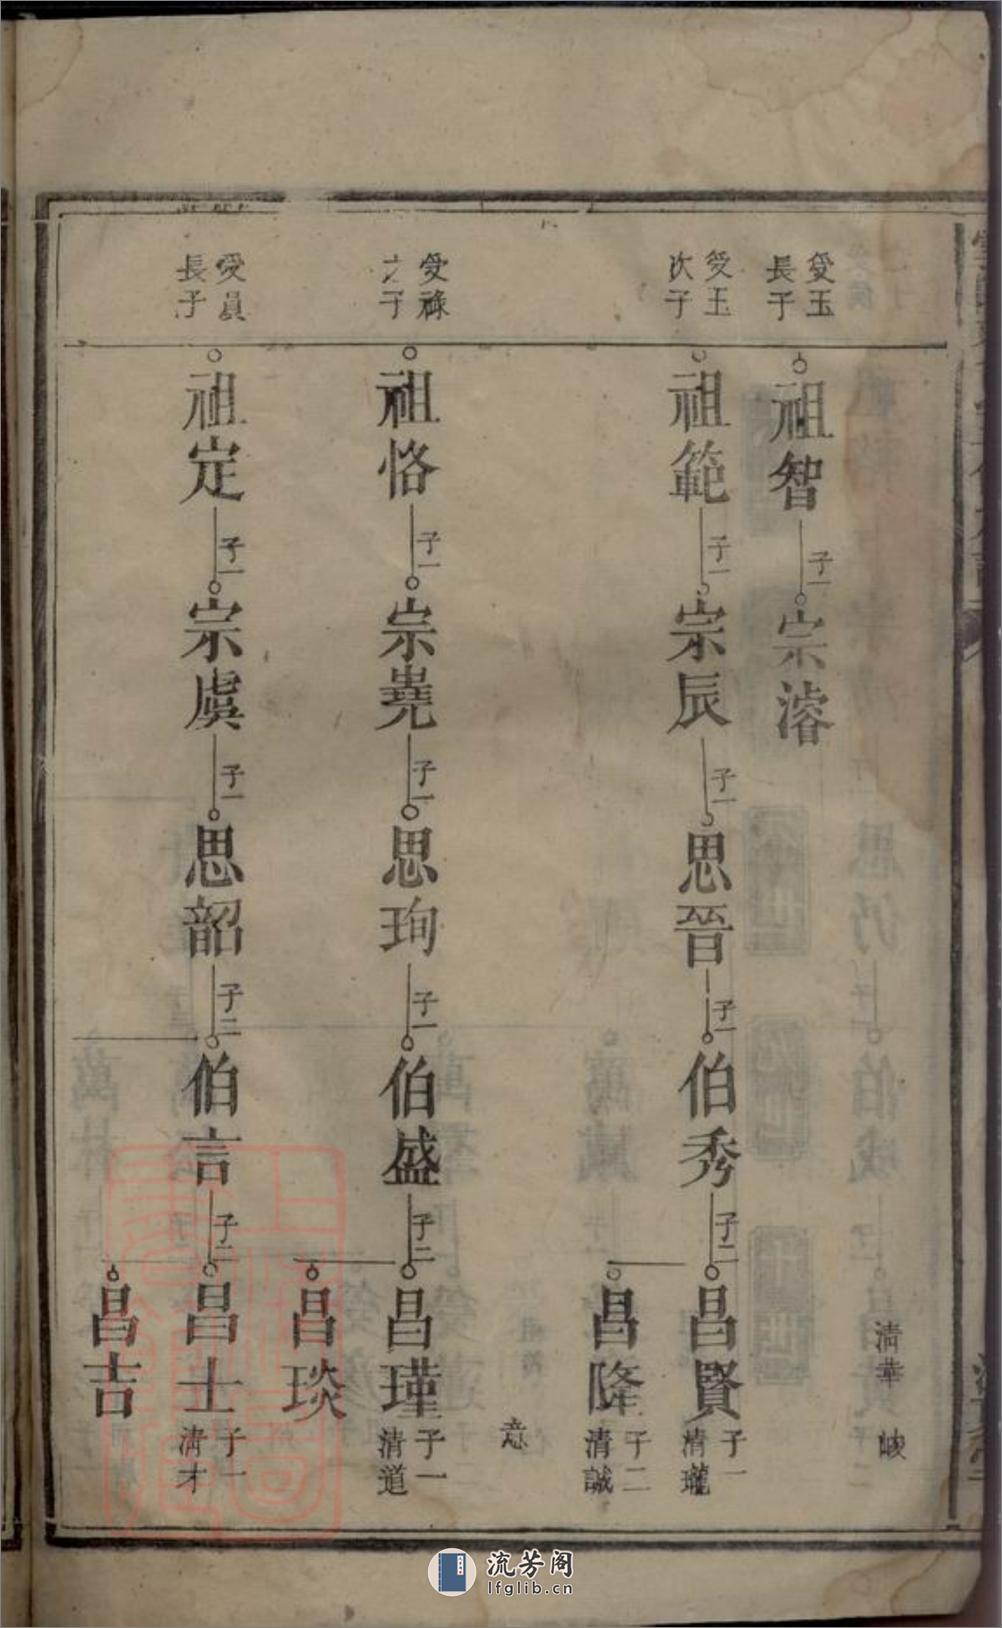 清華
峻
愛玉
長子
祖智
子一
宗濬
愛玉
次子
祖範
子一
宗辰
子一
思晉
子一
伯秀
子二
昌賢
子一
清瓏
昌降
子二
清誠
意
愛祿
之子
祖恪
子一
宗堯
子一
思珣
子一
伯盛
子二
昌瑾
子一
清道
昌琰
愛員
長子
祖定
子一
宗虞
子一
思韶
子二
伯言
子二
昌士
子一
清才
昌吉
流芳阁
lfglib.cn